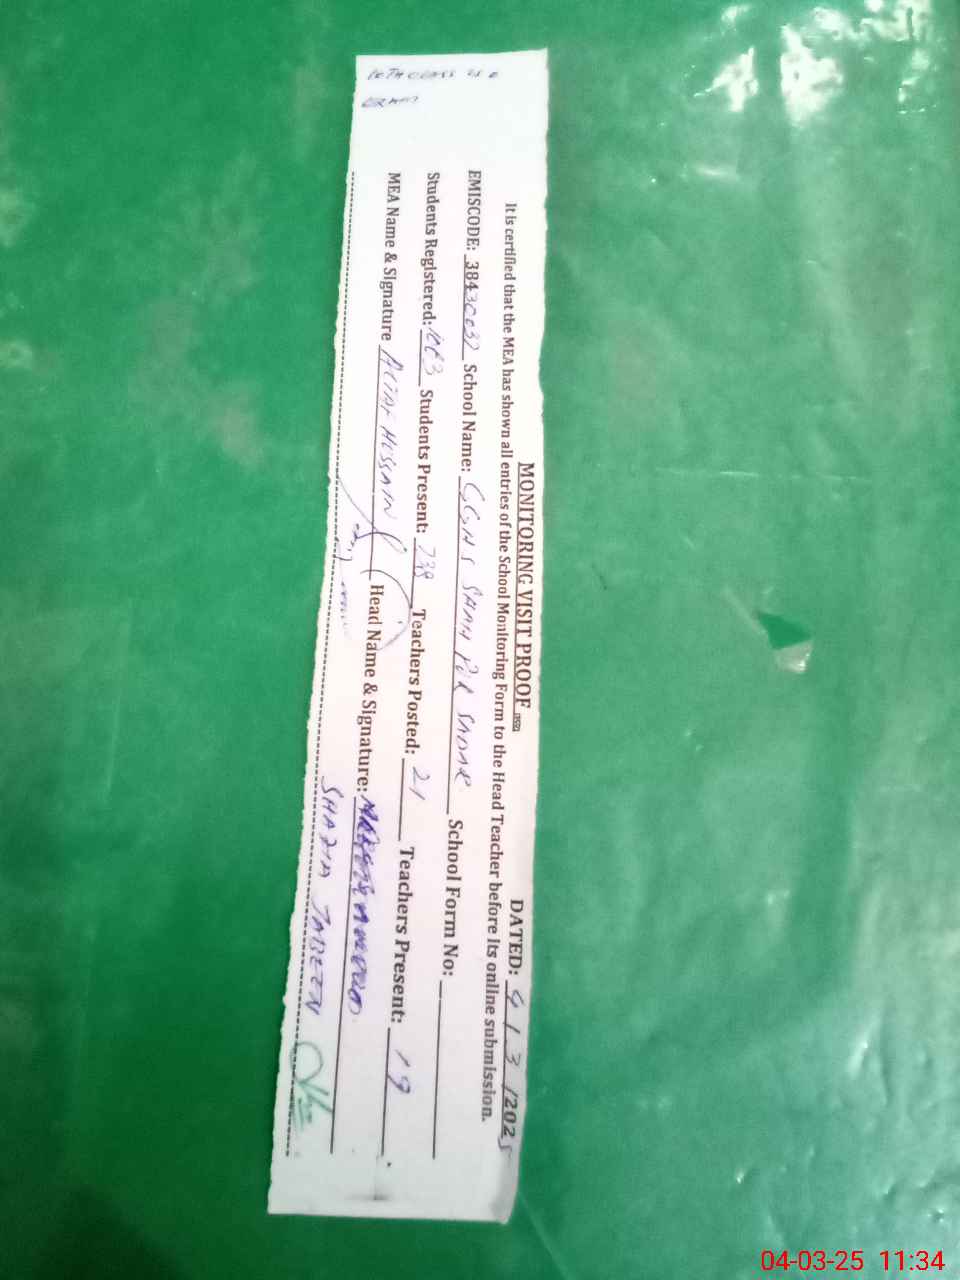 MONITORING VISIT PROOF DATED: 4/3/2025
It is certified that the MEA has shown all entries of the School Monitoring Form to the Head Teacher before its online submission.
EMISCODE: 38430032 School Name: GGHS SHAH PUR SADAR School Form No:
Students Registered: Students Present: 738 Teachers Posted: 21 Teachers Present: 19
MEA Name & Signature ALTAF HUSSAIN Head Name & Signature:
SHAZIA JABEEN
10TH CLASS
04-03-25 11:34